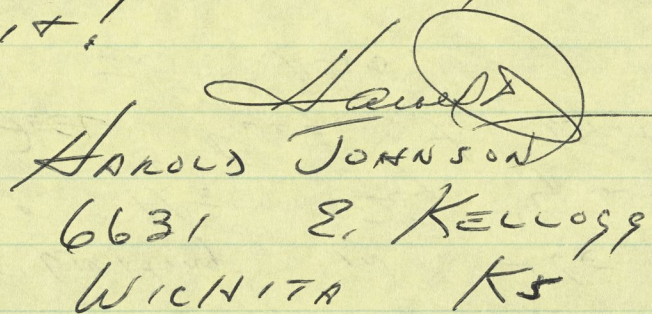 Harold
HAROLD JOHNSON
6631 E. KELLOGG
WICHITA KS